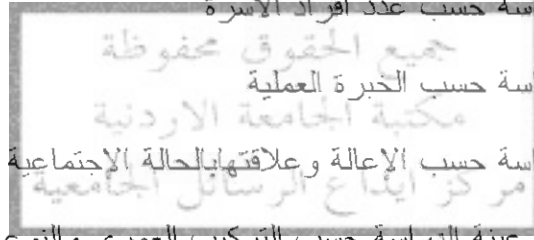 اسة حسب عدد افراد الاسرة
جميع الحقوق محفوظة
اسة حسب الخبرة العملية
مكتبة الجامعة الاردنية
اسة حسب الإعالة وعلاقتهابالحالة الإجتماعية
مركز ايداع الرسائل الجامعية
عينة الدراسة حسب التركيب العمري والنوعي